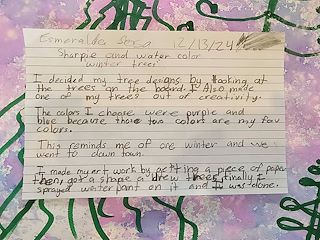 Esmeralda 12/13/24
Sharpie and water color
winter tree!
I decided my tree designs by looking at
the trees on the board. I Also made
one of my trees out of creativity.
The colors I choose were purple and
blue because those two colors are my fav
colors.
This reminds me of one winter and we
went to down town.
I made my art work by getting a piece of paper
then, got a shapie a drew trees finally I
sprayed water paint on it and it was done.